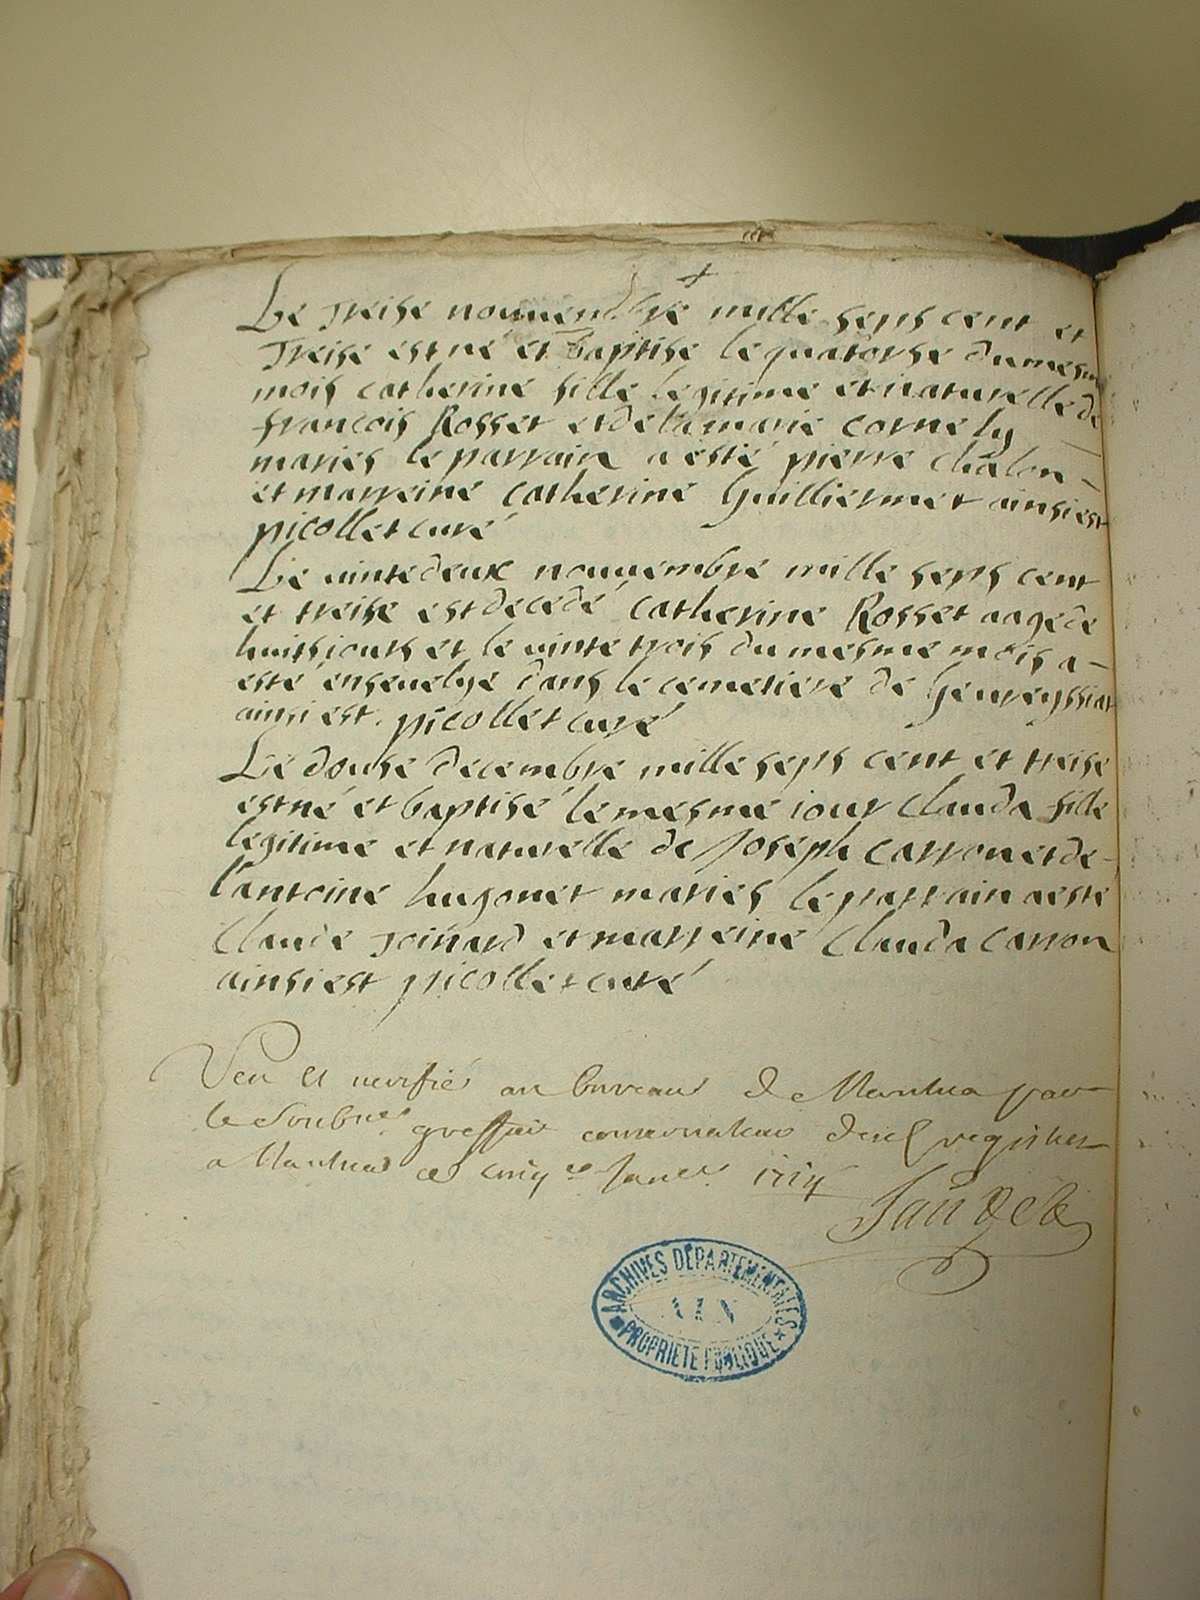 Le treise nouuembre mille seps cent et
treise est né et baptise le quatorse du mesme
mois catherine fille legitime et naturelle de
francois Rosset et de la marie cornely
maries le parrain a esté pierre chalon
et marreine catherine Guilliermet ainsi est
picollet curé
Le uinte deux nouuembre mille seps cent
et treise est decedé catherine Rosset aagé de
huits iours et le uinte trois du mesme mois a
esté enseuelye dans le cemetiere de Geureyssiat
ainsi est picollet curé
Le douse decembre mille seps cent et treise
est né et baptisé le mesme iour Clauda fille
legitime et naturelle de Joseph carron et de
l'antoine hugonet maries le parrain a esté
Claude Joinard et marreine Clauda carron
ainsi est picollet curé
Veu et veriffié au bureau de Nantua par
le Soubné greffier conservateur desd registres
a Nantua ce cinqe Janer 1714
ARCHIVES DÉPARTEMENTALES
AIN
PROPRIÉTÉ PUBLIQUE